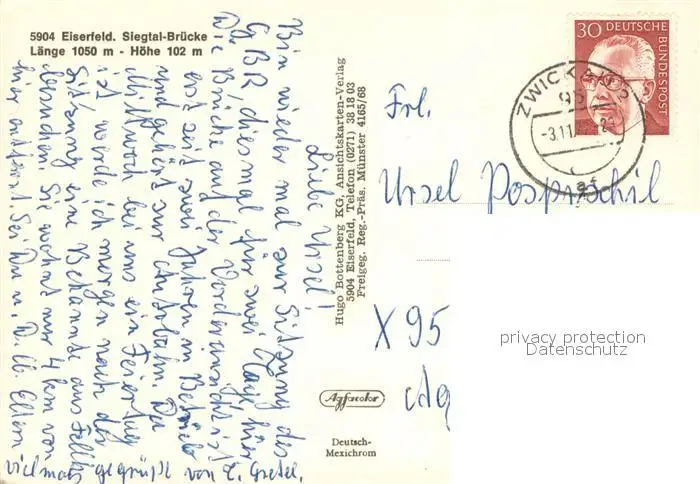 5904 Eiserfeld. Siegtal-Brücke
Länge 1050 m - Höhe 102 m
Liebe Ursel!
Bin wieder mal zur Sitzung des
GBR, diesmal für zwei Tage hier
Die Brücke auf der Vorderansicht ist
erst seit zwei Jahren in Betrieb
und gehört zur Autobahn. Da
Mittwoch bei uns ein Feiertag
ist werde ich morgen nach der
Sitzung eine Bekannte aus
besuchen. Sie wohnt nur 4 km von
hier entfernt. Sei Du u. D. lb. Eltern
vielmals gegrüßt von T. Gretel.
Hugo Bottenberg KG, Ansichtskarten-Verlag
5904 Eiserfeld, Telefon (0271) 38 18 03
Freigeg. Reg.-Präs. Münster 4165/68
Agfacolor
Deutsch-
Mexichrom
30 DEUTSCHE
BUNDESPOST
ZWICKAU 2
95
-3.11
af
Frl.
Ursel Pospischil
X 95
privacy protection
Datenschutz